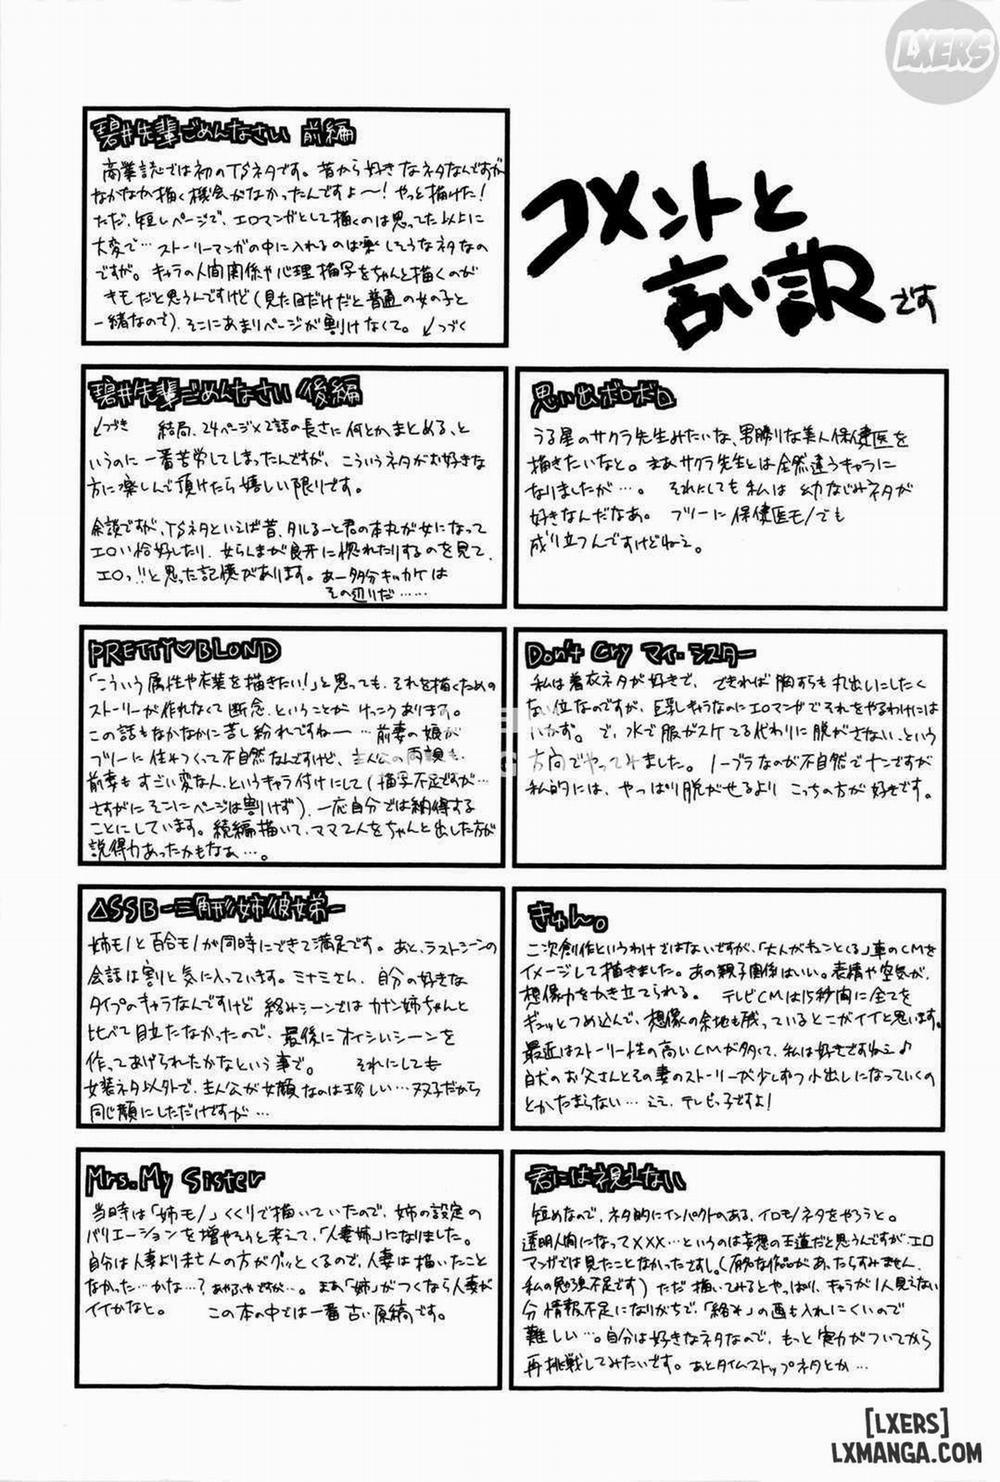 LXERS
コメントと
言い訳です
碧井先輩ごめんなさい 前編
商業誌では初のTSネタです。昔から好きなネタなんですが
なかなか描く機会がなかったんですよ〜!やっと描けた!
ただ、短しページで、エロマンガとして描くのは思ってた以上に
大変で…ストーリーマンガの中に入れるのは楽しそうなネタなの
ですが。キャラの人間関係や心理描写をちゃんと描くのが
キモだと思うんですけど(見た目だけだと普通の女の子と
一緒なので)、そこにあまりページが割けなくて。↙つづく
碧井先輩ごめんなさい 後編
↙つづき 結局、24ページ×2話の長さに何とかまとめる、と
いうのに一番苦労してしまったんですが、こういうネタがお好きな
方に楽しんで頂けたら嬉しい限りです。
余談ですが、TSネタといえば昔、タルるーと君の本丸が女になって
エロい恰好したり、女らんまが良牙に惚れたりするのを見て、
エロっ!!と思った記憶があります。あー多分キッカケは
その辺りだ……
思い出ボロボロ
うる星のサクラ先生みたいな、男勝りな美人保健医を
描きたいなと。まあサクラ先生とは全然違うキャラに
なりましたが…。それにしても私は幼なじみネタが
好きなんだなあ。フツーに保健医モノでも
成り立つんですけどねェ。
PRETTY♡BLOND
「こういう属性や衣装を描きたい!」と思っても、それを描くための
ストーリーが作れなくて断念、ということがけっこうあります。
この話もなかなかに苦し紛れですねー…前妻の娘が
フツーに住みつくって不自然なんですけど、主人公の両親も、
前妻もすごい変な人、というキャラ付けにして(描写不足ですが…
さすがにそこにページは割けず)、一応自分では納得する
ことにしています。続編描いて、ママ2人をちゃんと出した方が
説得力あったかもなぁ…。
Don't Cry マイ・シスター
私は着衣ネタが好きで、できれば胸すらも丸出しにしたく
ない位なのですが、巨乳キャラなのにエロマンガでそれをやるわけには
いかず。で、水で服がスケてる代わりに脱がさない、という
方向でやってみました。ノーブラなのが不自然でナンですが
私的には、やっぱり脱がせるよりこっちの方が好きです。
△SSB-三角形/姉/彼女/弟-
姉モノと百合モノが同時にできて満足です。あと、ラストシーンの
会話は割と気に入っています。ミナミさん、自分の好きな
タイプのキャラなんですけど絡みシーンではカナン姉ちゃんと
比べて目立たなかったので、最後にオイシいシーンを
作ってあげられたかなという事で。それにしても
女装ネタ以外で、主人公が女顔なのは珍しい…双子だから
同じ顔にしただけですが…
きゅん。
二次創作というわけではないですが、「大人がキュンとくる」車のCMを
イメージして描きました。あの親子関係はいい。表情や空気が、
想像力をかき立てられる。テレビCMは15秒間に全てを
ギュッとつめ込んで、想像の余地も残っているとこがイイと思います。
最近はストーリー性の高いCMが多くて、私は好きですねェ♪
白犬のお父さんとその妻のストーリーが少しずつ小出しになっていくの
とかたまらない…ええ、テレビっ子ですよ!
Mrs.My Sister
当時は「姉モノ」くくりで描いていたので、姉の設定の
バリエーションを増やそうと考えて、「人妻姉」になりました。
自分は人妻より未亡人の方がグッとくるので、人妻は描いたこと
なかった…かな…?あやふやですが…。まあ「姉」がつくなら人妻が
イイかなと。この本の中では一番古い原稿です。
君には視えない
短めなので、ネタ的にインパクトのある、イロモノネタをやろうと。
透明人間になって×××…というのは妄想の王道だと思うんですが、エロ
マンガでは見たことなかったですし。(有名な作品があったらすみません、
私の勉強不足です)ただ描いてみるとやっぱり、キャラが1人見えない
分情報不足になりがちで、「絡み」の画も入れにくいので
難しい…。自分は好きなネタなので、もっと実力がついてから
再挑戦してみたいです。あとタイムストップネタとか…
[LXERS]
LXMANGA.COM